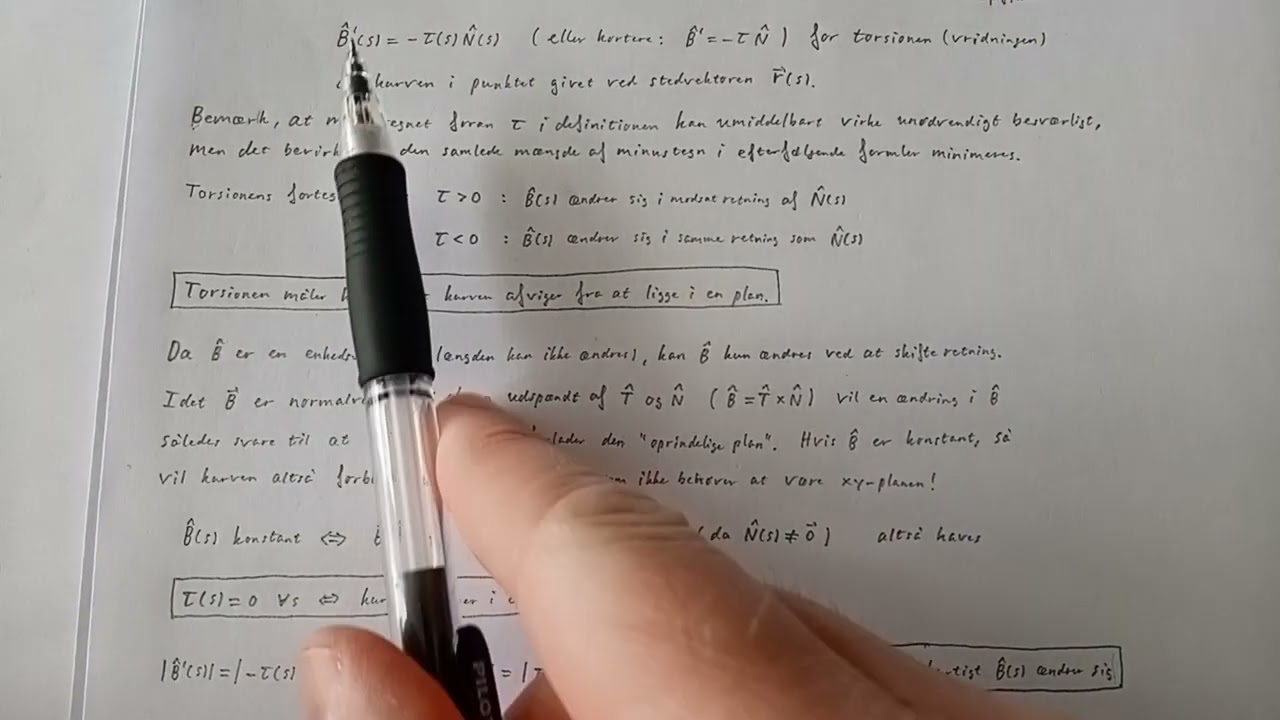 B̂'(s) = -τ(s) N̂(s) (eller kortere: B̂' = -τ N̂) for torsionen (vridningen)
kurven i punktet givet ved stedvektoren r⃗(s).
Bemærk, at foran τ i definitionen kan umiddelbart virke unødvendigt besværligt,
men det den samlede mængde af minustegn i efterfølgende formler minimeres.
Torsionens τ > 0 : B̂(s) ændrer sig i modsat retning af N̂(s)
τ < 0 : B̂(s) ændrer sig i samme retning som N̂(s)
Torsionen måler kurven afviger fra at ligge i en plan.
Da B̂ er en længden kan ikke ændres), kan B̂ kun ændres ved at skifte retning.
Idet B⃗ er udspændt af T̂ og N̂ (B̂ = T̂ × N̂) vil en ændring i B̂
således svare til at den "oprindelige plan". Hvis B̂ er konstant, så
vil kurven altså ikke behøver at være xy-planen!
B̂(s) konstant ⇔ (da N̂(s) ≠ 0⃗) altså haves
τ(s) = 0 ∀s ⇔ i
|B̂'(s)| = |-τ(s) = | B̂(s) ændrer sig
PILO